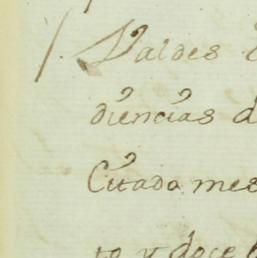 Valdes
diencias d
Citada mes
to y doce